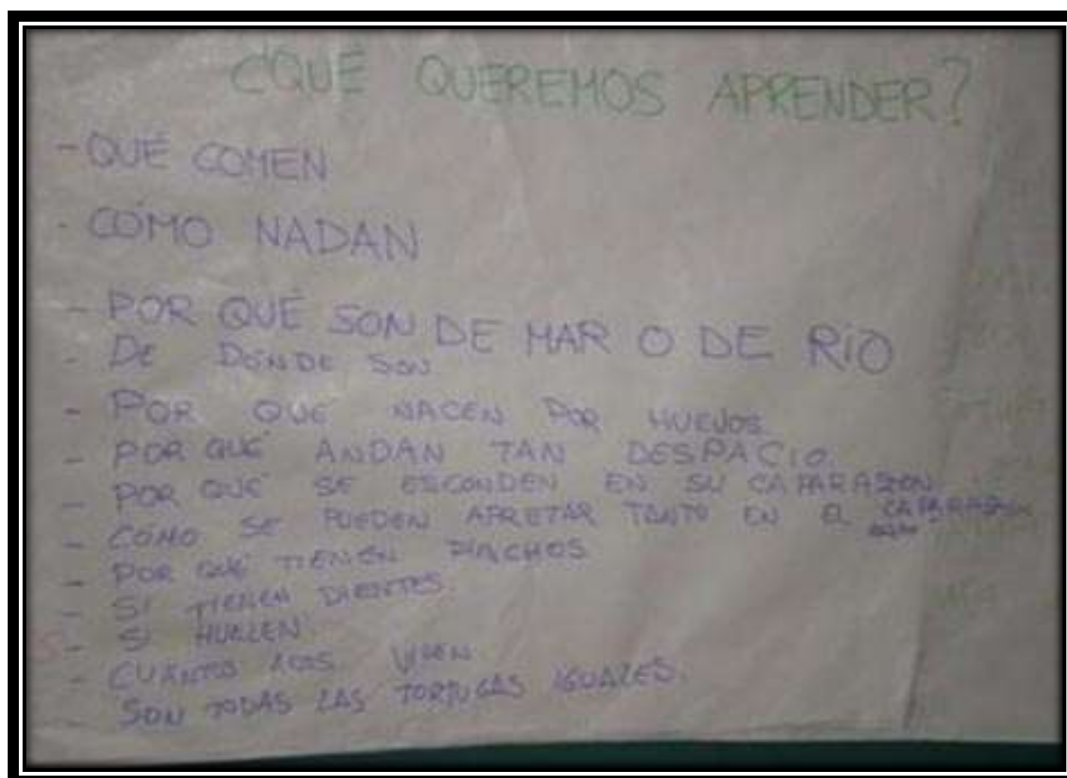 ¿QUÉ QUEREMOS APRENDER?
- QUÉ COMEN
- CÓMO NADAN
- POR QUÉ SON DE MAR O DE RÍO
- DE DÓNDE SON
- POR QUÉ NACEN POR HUEVOS.
- POR QUÉ ANDAN TAN DESPACIO.
- POR QUÉ SE ESCONDEN EN SU CAPARAZÓN.
- CÓMO SE PUEDEN APRETAR TANTO EN EL CAPARAZÓN
- POR QUÉ TIENEN PINCHOS
- SI TIENEN DIENTES.
- SI HUELEN.
- CUÁNTOS AÑOS VIVEN
- SON TODAS LAS TORTUGAS IGUALES.